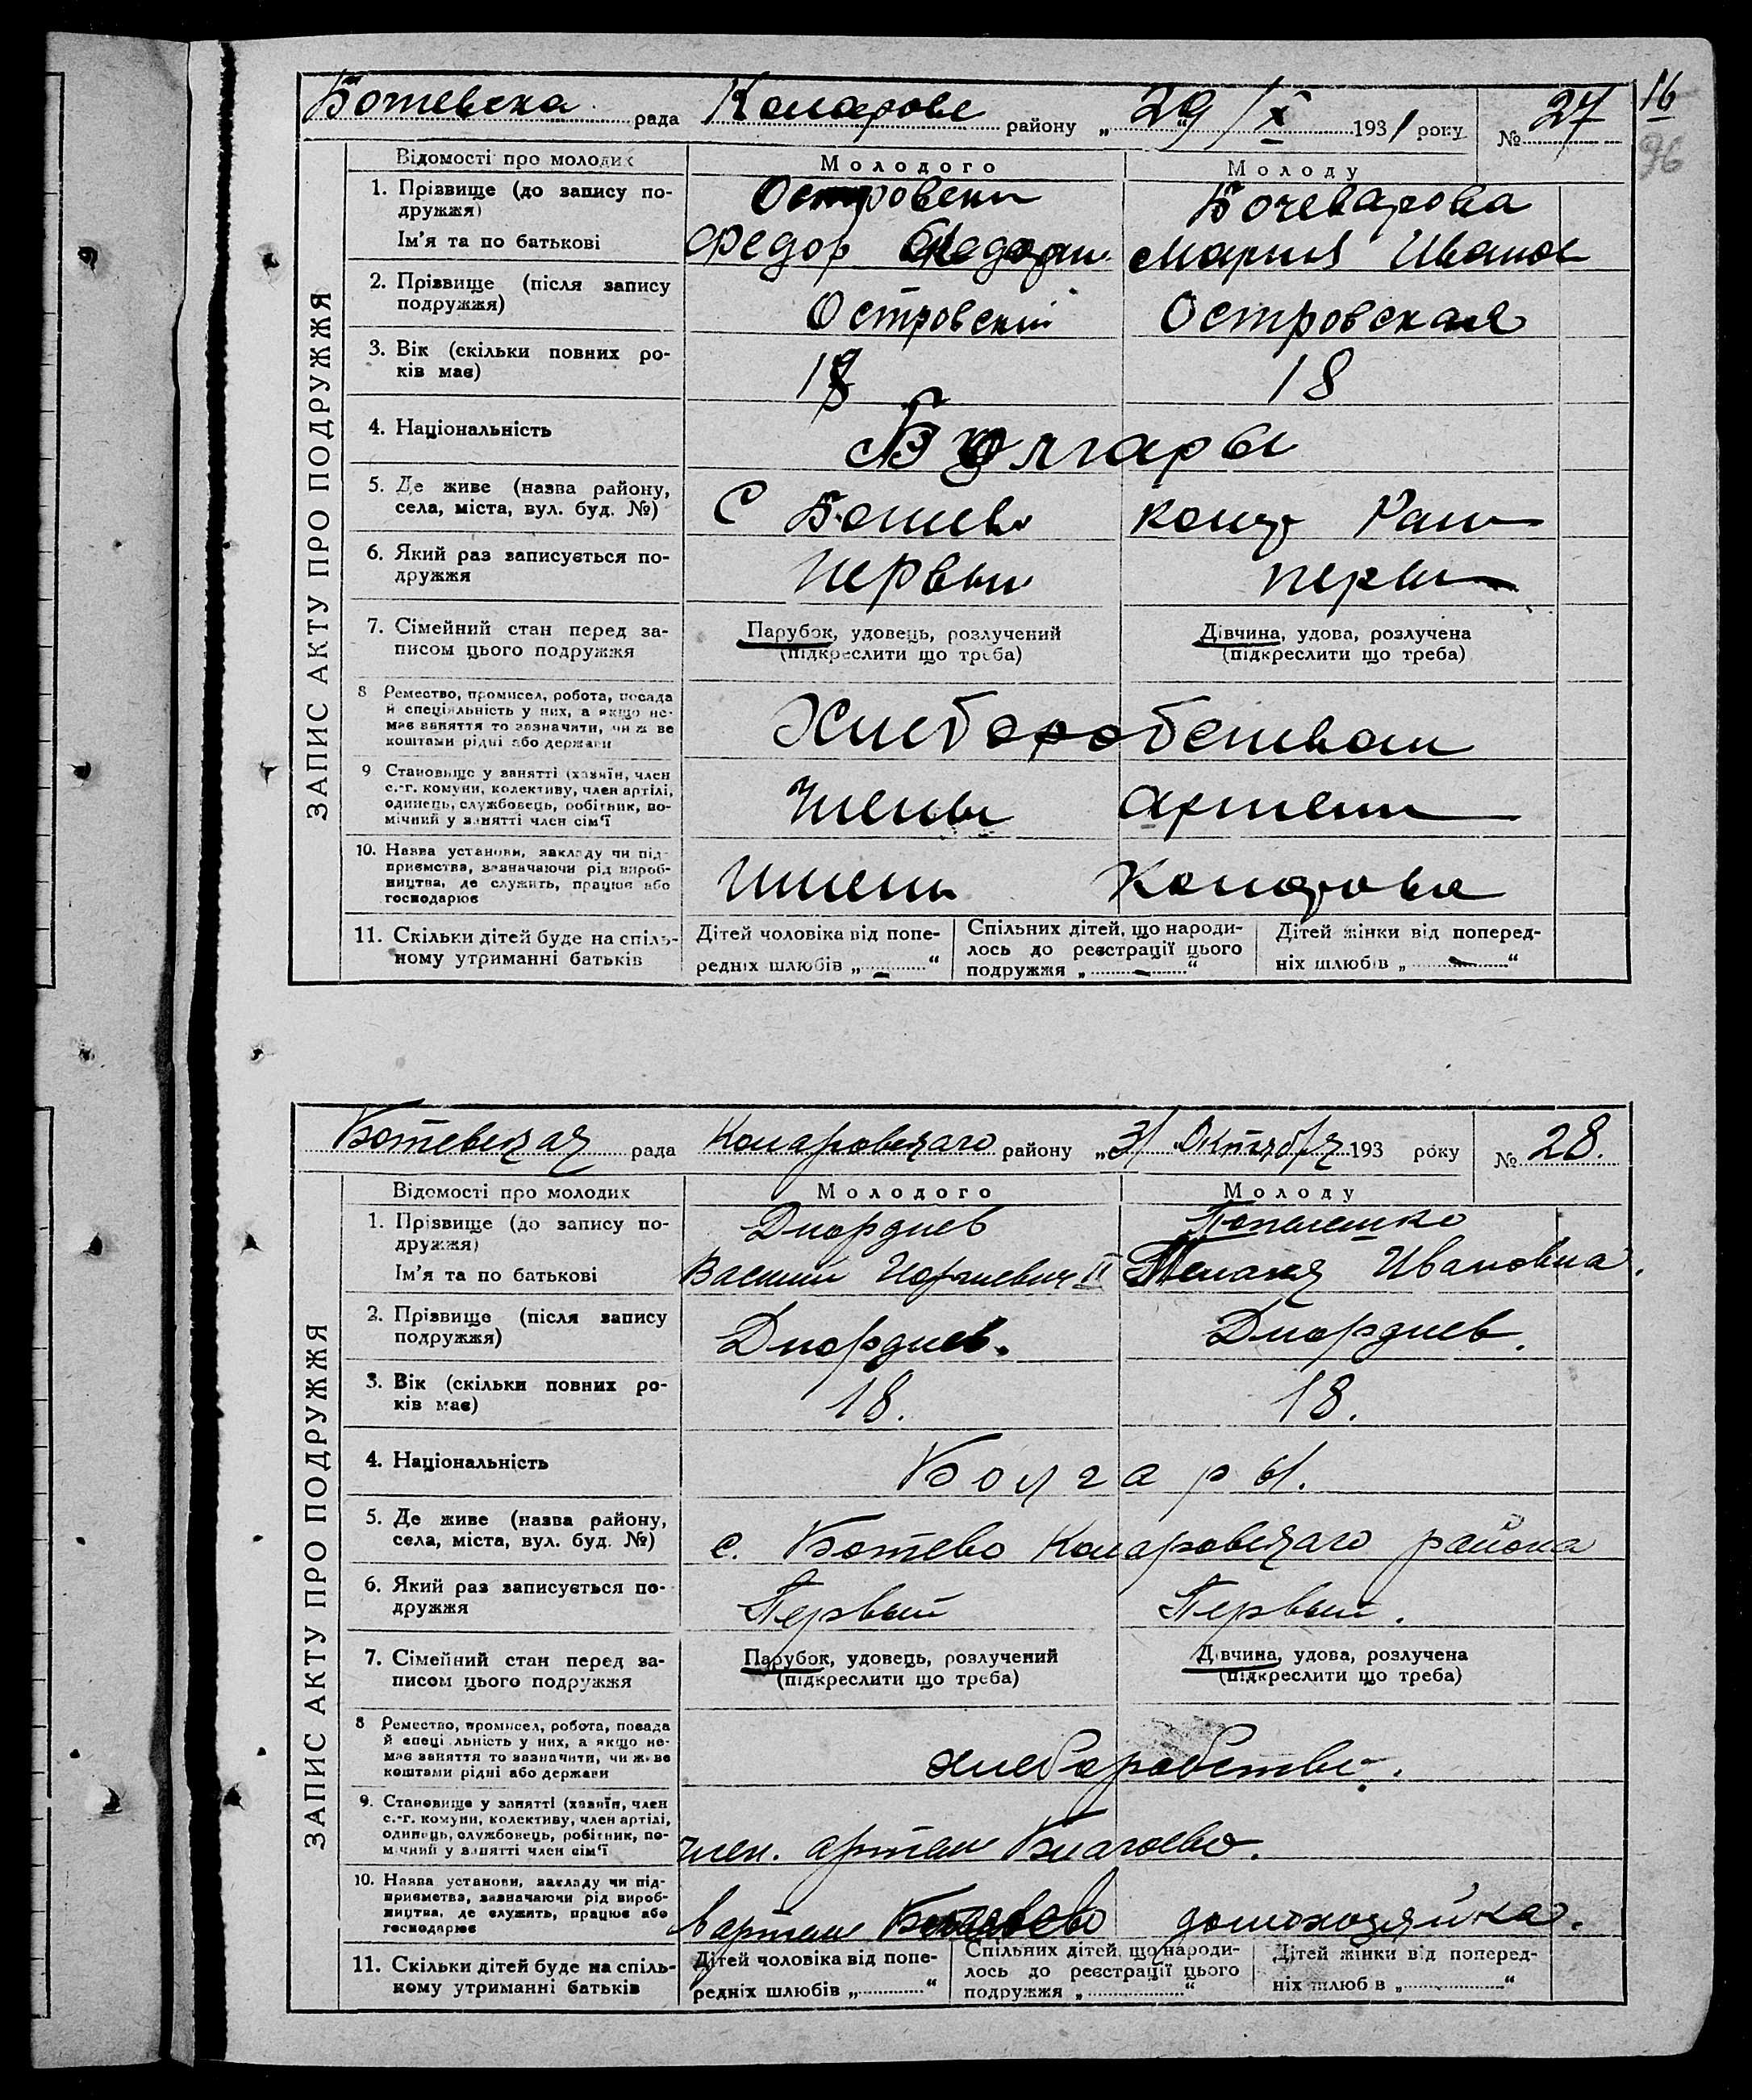 16
96
Ботевска рада Коларове району „29 / X 1931 року № 27
ЗАПИС АКТУ ПРО ПОДРУЖЖЯ
Відомості про молодих Молодого Молоду
1. Прізвище (до запису по-
дружжя) Островски Бочеварова
Ім'я та по батькові Федор Федори Мария Иванов
2. Прізвище (після запису
подружжя) Островский Островская
3. Вік (скільки повних ро-
ків має) 18 18
4. Національність Болгары
5. Де живе (назва району,
села, міста, вул. буд. №) С Ботево
6. Який раз записується по-
дружжя Первый первый
7. Сімейний стан перед за-
писом цього подружжя
Парубок, удовець, розлучений
(підкреслити що треба)
Дівчина, удова, розлучена
(підкреслити що треба)
8 Ремество, промисел, робота, посада
й спеціяльність у них, а якщо не-
має заняття то зазначити, чи живе
коштами рідні або держави
9 Становище у занятті (хазяїн, член
с.-г. комуни, колективу, член артілі,
одинець, службовець, робітник, по-
мічний у занятті член сім'ї
члены артели
10. Назва установи, закладу чи під-
приємства, зазначаючи рід вироб-
ництва, де служить, працює або
господарює
11. Скільки дітей буде на спіль-
ному утриманні батьків
Дітей чоловіка від попе-
редніх шлюбів „ — “
Спільних дітей, що народи-
лось до реєстрації цього
подружжя „ — “
Дітей жінки від поперед-
ніх шлюбів „ — “
Ботевская рада Коларовскаго району „31 Октября 193 року № 28.
ЗАПИС АКТУ ПРО ПОДРУЖЖЯ
Відомості про молодих Молодого Молоду
1. Прізвище (до запису по-
дружжя) Диордиев
Ім'я та по батькові Василий II Ивановна.
2. Прізвище (після запису
подружжя) Диордиев. Диордиев.
3. Вік (скільки повних ро-
ків має) 18. 18.
4. Національність Болгары.
5. Де живе (назва району,
села, міста, вул. буд. №) с. Ботево Коларовскаго района
6. Який раз записується по-
дружжя Первый Первый.
7. Сімейний стан перед за-
писом цього подружжя
Парубок, удовець, розлучений
(підкреслити що треба)
Дівчина, удова, розлучена
(підкреслити що треба)
8 Ремество, промисел, робота, посада
й спеціяльність у них, а якщо не-
має заняття то зазначити, чи живе
коштами рідні або держави
хлеборобство.
9. Становище у занятті (хазяїн, член
с.-г. комуни, колективу, член артілі,
одинець, службовець, робітник, по-
мічний у занятті член сім'ї
член. артели Благоево.
10. Назва установи, закладу чи під-
приємства, зазначаючи рід вироб-
ництва, де служить, працює або
господарює
в артели домохозяйка.
11. Скільки дітей буде на спіль-
ному утриманні батьків
Дітей чоловіка від попе-
редніх шлюбів „ “
Спільних дітей, що народи-
лось до реєстрації цього
подружжя „ “
Дітей жінки від поперед-
ніх шлюбів „ “